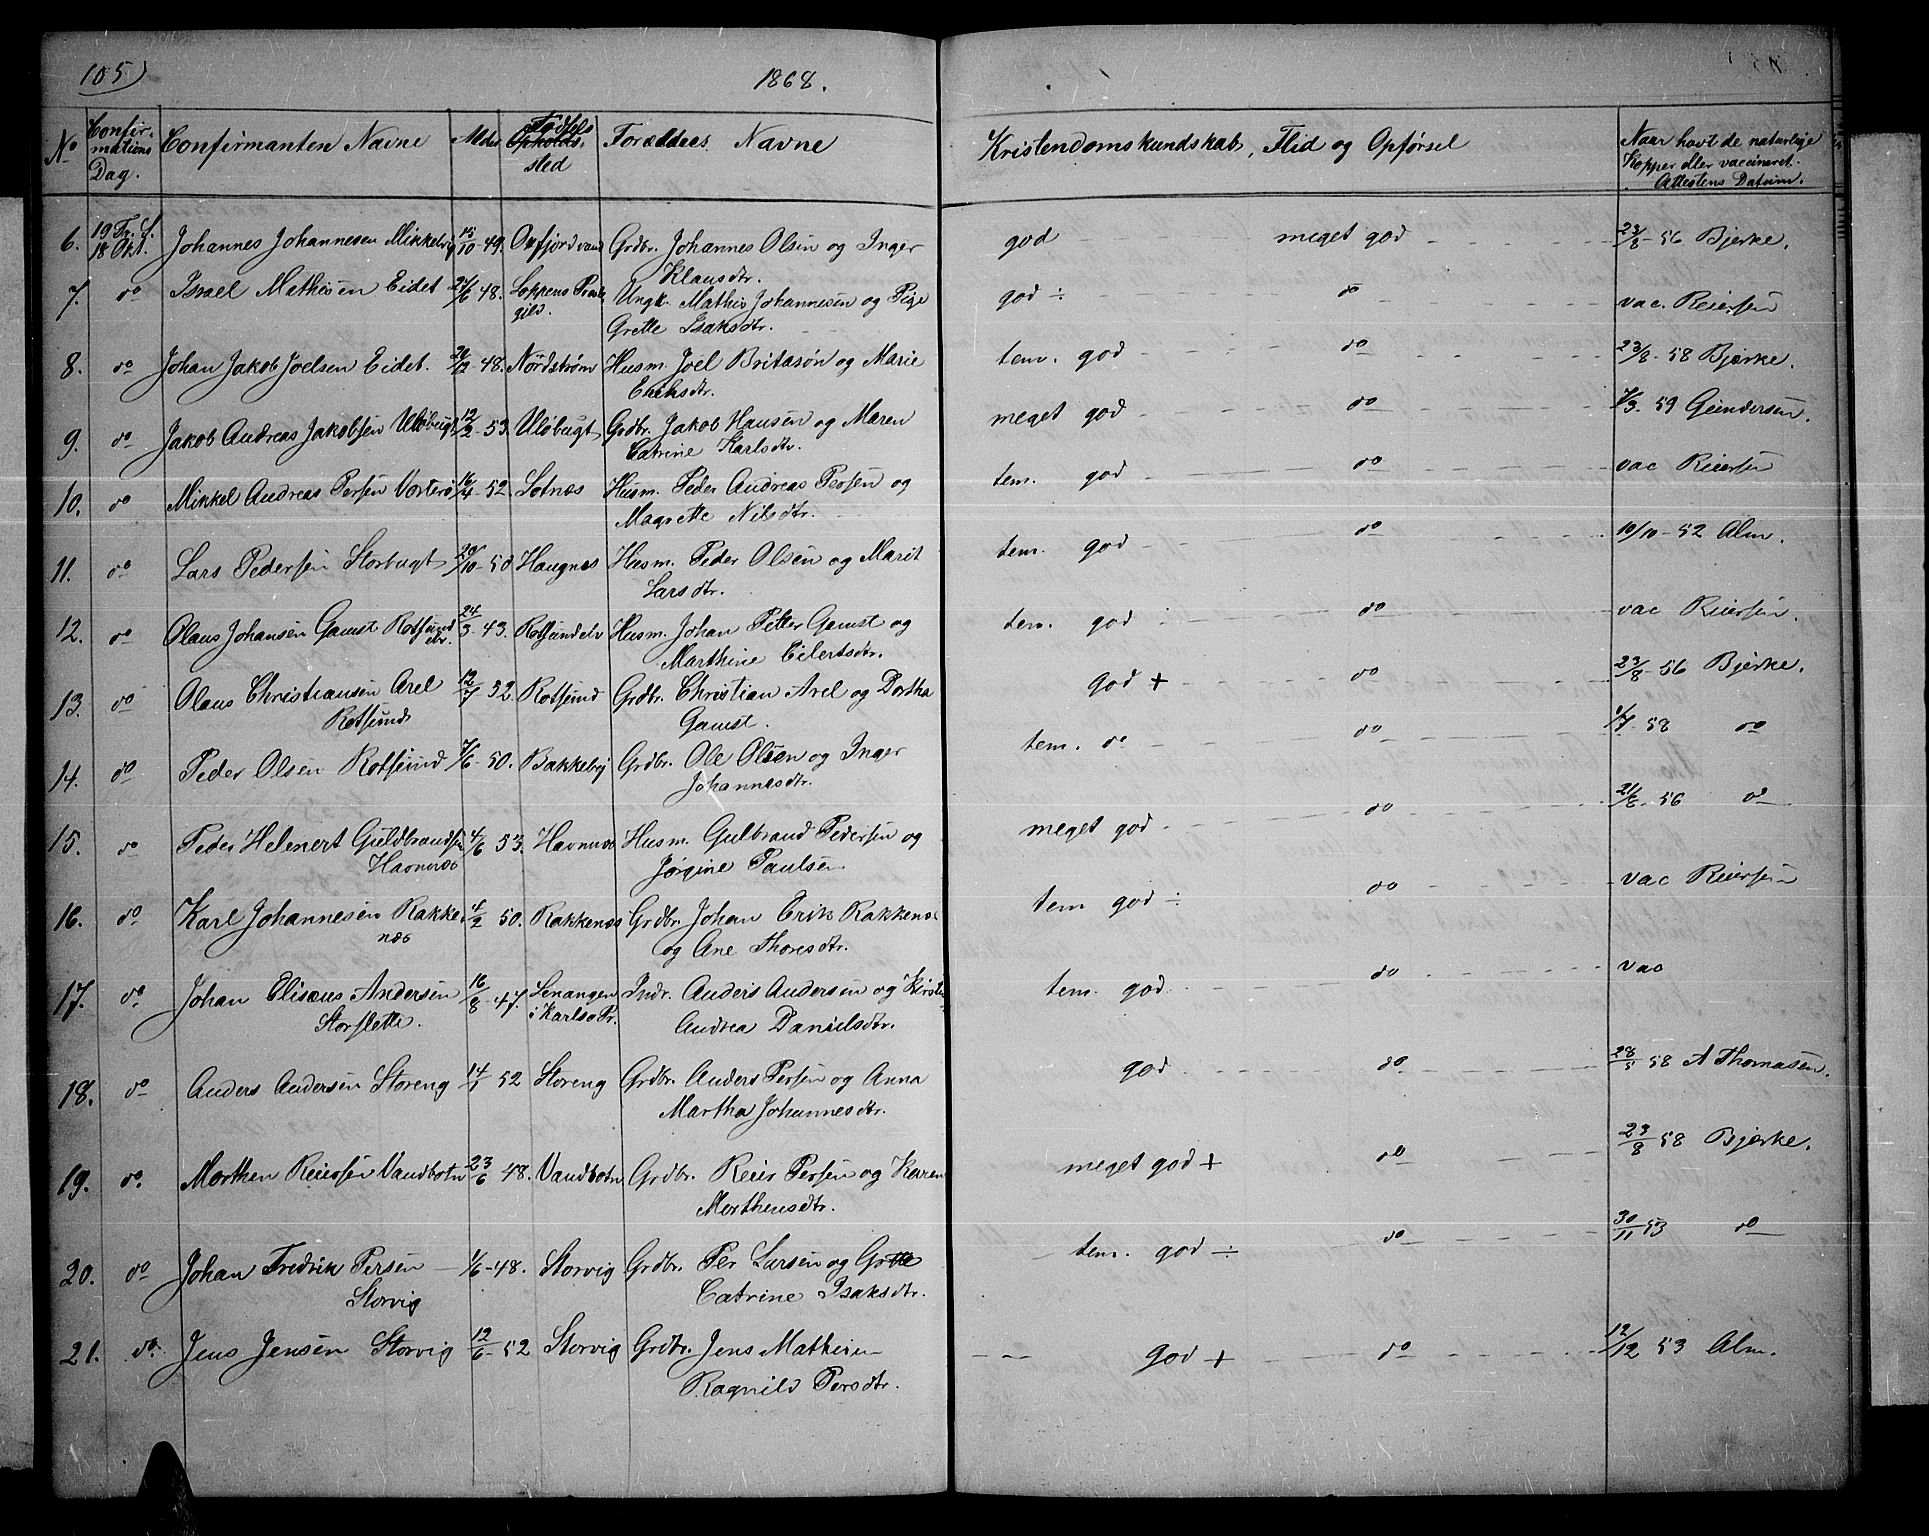 105)
1868.
No Confirmations Dag. Confirmanten Navne Alder Fødsels Opholds-sted Forældres Navne Kristendomskundskab, Flid og Opførsel Naar havt de naturlige Kopper eller vaccineret. Attestens Datum.
6. 19 Tr. S. 18 Okt. Johannes Johannesen Mikkelvig 15/10-49. Oxfjordvand Grdbr. Johannes Olsen og Inger god meget god 23/8-56 Bjerke.
Klausdtr.
7. do Israel Mathisen Eidet 24/6-48. Loppens Prestegild. Ungk. Mathis Johannesen og Pige god ÷ do vac. Reiersen
Grette Isaksdtr.
8. do Johan Jakob Joelsen Eidet. 20/12-48. Nordstrøm Husm. Joel Britasøn og Marie tem. god do 23/8-58 Bjerke.
Eriksdtr.
9. do Jakob Andreas Jakobsen Uløbugt 12/2-53. Uløbugt Grdbr. Jakob Hansen og Maren meget god do 7/3. 59 Gundersen.
Catrine Karlsdtr.
10. do Mikkel Andreas Persen Vorterø 16/4-52. Sotnæs Husm. Peder Andreas Persen og tem. god do vac Reiersen
Magrette Nilsdtr.
11. do Lars Pedersen Storbugt 20/10-50 Haugnæs Husm. Peder Olsen og Marit tem. god do 10/10-52 Alm.
Larsdtr.
12. do Olaus Johansen Gamst Rotsundelv. 24/3-43. Rotsundelv Husm. Johan Petter Gamst og tem. god do vac Reiersen.
Marthine Eilertsdtr.
13. do Olaus Christiansen Arel 12/7-52. Rotsund Grdbr. Christian Arel og Dortha god + do 23/8-56 Bjerke.
Rotsund Gamst.
14. do Peder Olsen Rotsund 7/6-50. Bakkeby Grdbr. Ole Olsen og Inger tem. do do 1/7-58 do
Johannesdtr.
15. do Peder Helenert Guldbrandsen 4/6 53. Havnnæs Husm. Gulbrand Pedersen og meget god do 21/8-56 do
Havnnæs Jørgine Paulsen
16. do Karl Johannesen Rakke- 4/2 50. Rakkenæs Grdbr. Johan Erik Rakkenæs tem god ÷ do vac Reiersen
næs og Ane Thoresdtr.
17. do Johan Elisæus Andersen 16/8-47. Lenangen Indr. Anders Andersen og Kirsten tem. god do vac
Storslette. i Karlsø Pr. Andrea Danielsdtr.
18. do Anders Andersen Storeng 14/1 52 Storeng Grdbr. Anders Persen og Anna god do 28/5 58 A Thomasen.
Martha Johannesdtr.
19. do. Morthen Reiersen Vandbotn 23/6 48. Vandbotn Grdbr. Reier Persen og Karen meget god + do 23/8 58 Bjerke.
Morthensdtr.
20. do Johan Fredrik Persen 1/6-48. Storvig Grdbr. Per Larsen og Grette tem. god ÷ do 30/11 53 do
Storvig Catrine Isaksdtr.
21. do. Jens Jensen Storvig 12/6-52 Storvig Grdbr. Jens Mathisen god + do 12/12 53 Alm.
Ragnild Persdtr.